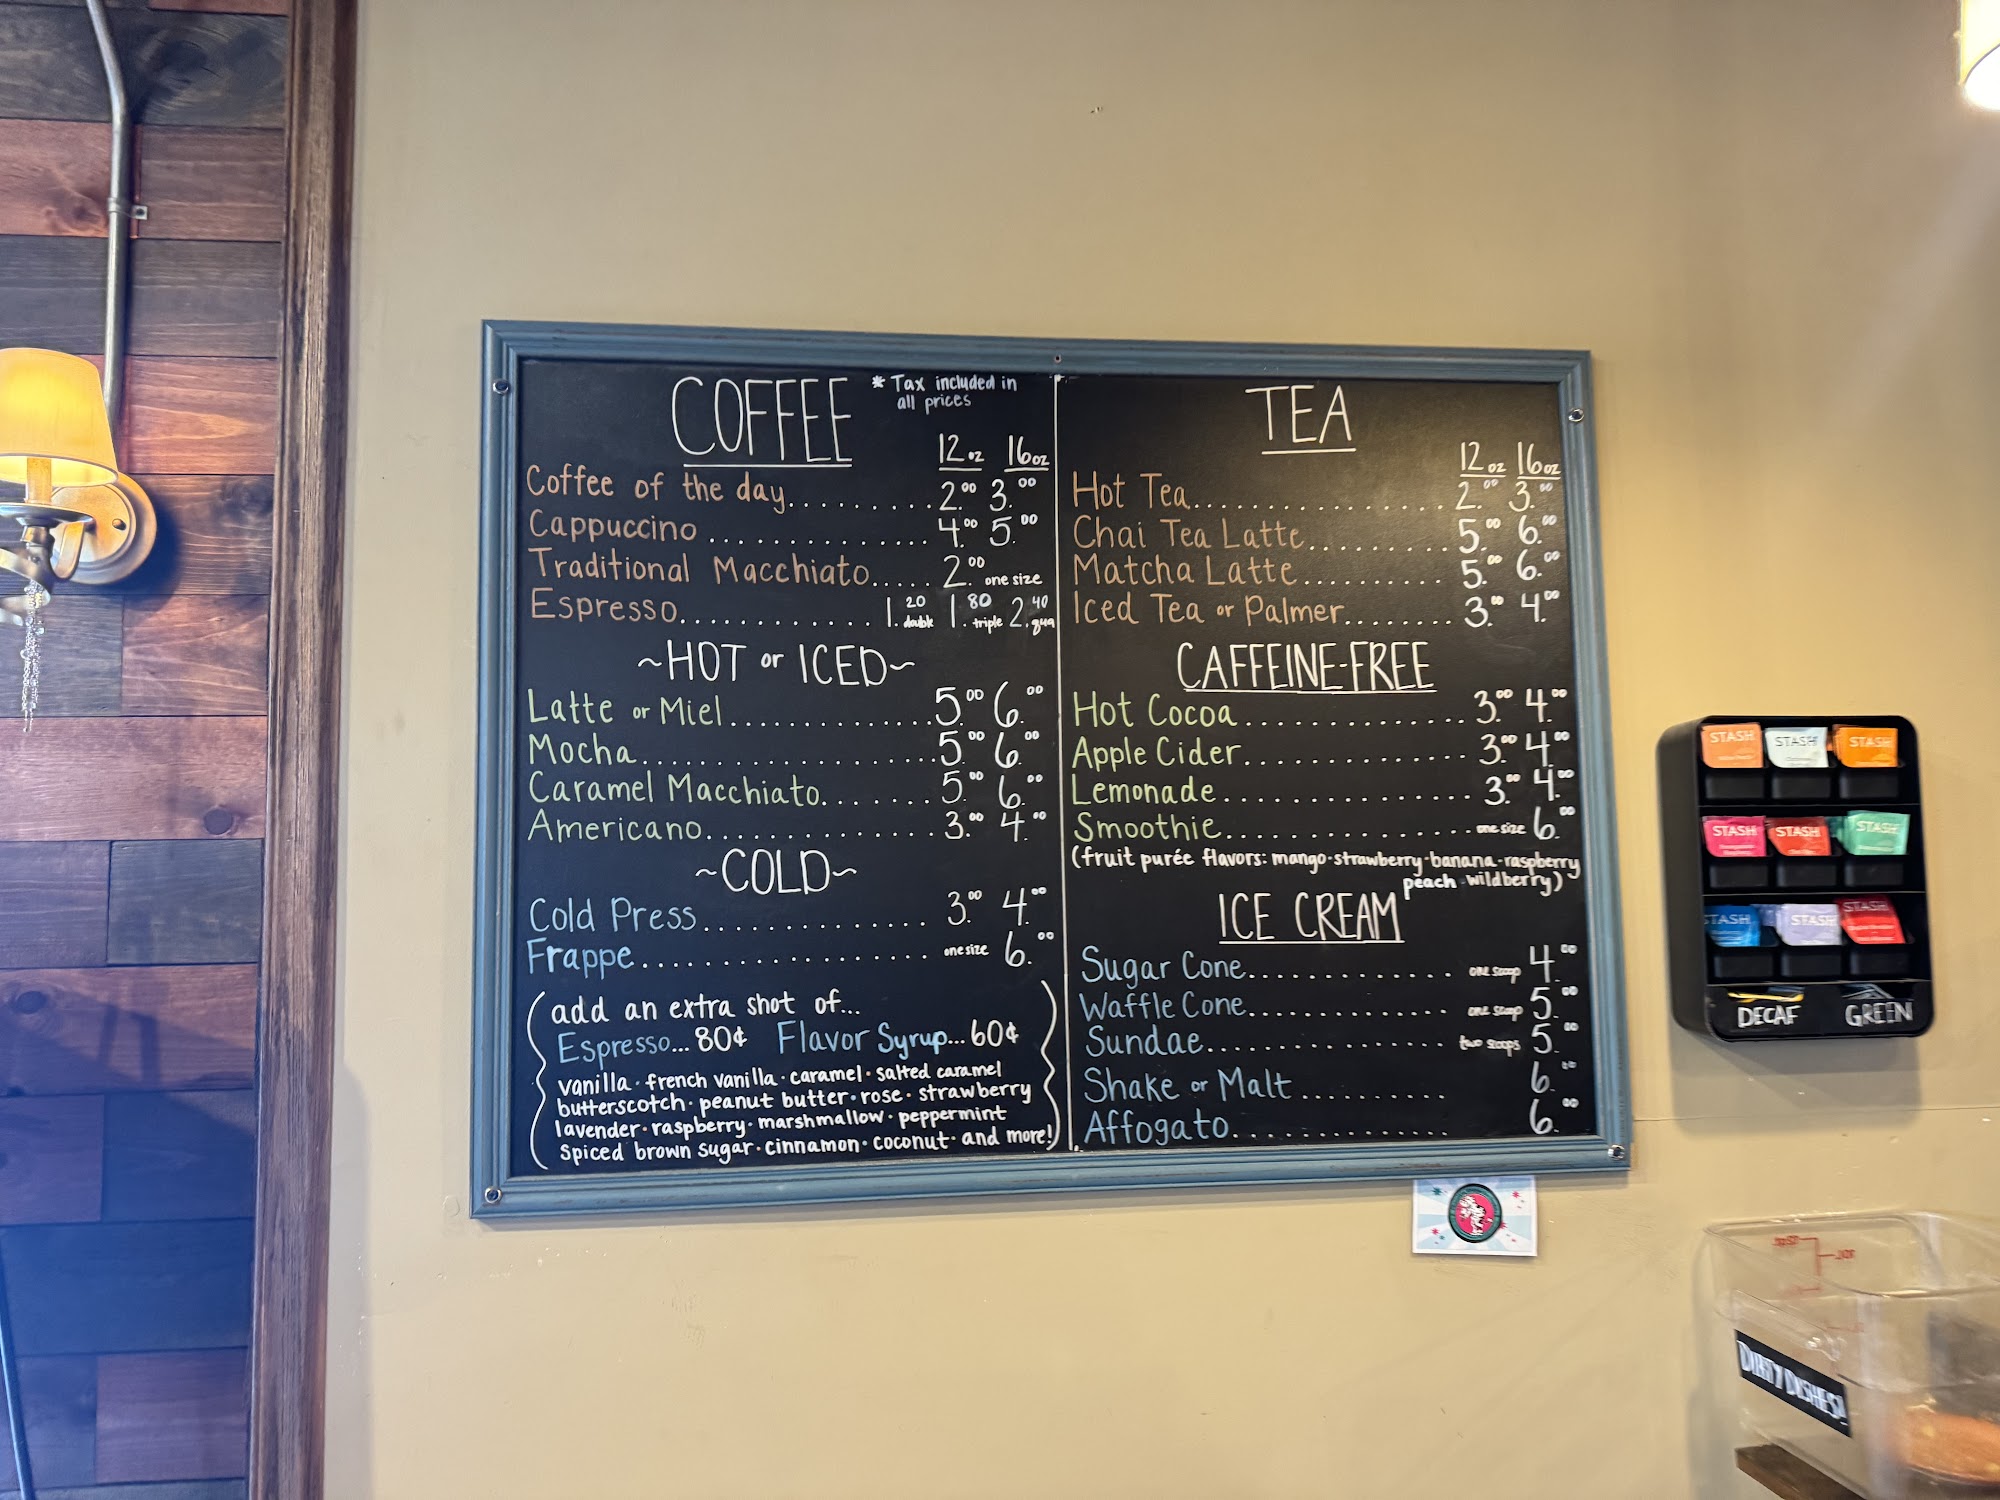 COFFEE
* Tax included in
all prices
12oz 16oz
Coffee of the day......... 2.00 3.00
Cappuccino .............. 4.00 5.00
Traditional Macchiato..... 2.00 one size
Espresso............ 1.20 double 1.80 triple 2.40 qua
~HOT or ICED~
Latte or Miel.............. 5.00 6.00
Mocha.................... 5.00 6.00
Caramel Macchiato....... 5.00 6.00
Americano............... 3.00 4.00
~COLD~
Cold Press.............. 3.00 4.00
Frappe.................. one size 6.00
(add an extra shot of...
Espresso... 80¢ Flavor Syrup... 60¢
vanilla · french vanilla · caramel · salted caramel
butterscotch · peanut butter · rose · strawberry
lavender · raspberry · marshmallow · peppermint
spiced brown sugar · cinnamon · coconut · and more!)
TEA
12oz 16oz
Hot Tea.................. 2.00 3.00
Chai Tea Latte.......... 5.00 6.00
Matcha Latte........... 5.00 6.00
Iced Tea or Palmer........ 3.00 4.00
CAFFEINE-FREE
Hot Cocoa.............. 3.00 4.00
Apple Cider............. 3.00 4.00
Lemonade............... 3.00 4.00
Smoothie................ one size 6.00
(fruit purée flavors: mango · strawberry · banana · raspberry
peach · wildberry)
ICE CREAM
Sugar Cone............. one scoop 4.00
Waffle Cone............. one scoop 5.00
Sundae................ two scoops 5.00
Shake or Malt .......... 6.00
Affogato............. 6.00
STASH STASH STASH
STASH STASH STASH
STASH STASH STASH
DECAF GREEN
DIRTY DISHES!